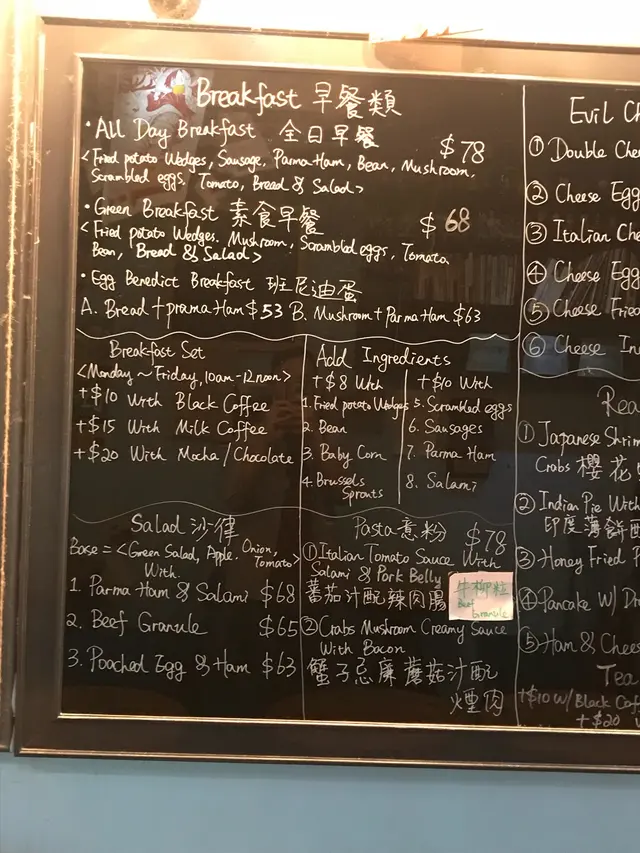 Breakfast 早餐類
· All Day Breakfast 全日早餐 $78
<Fried potato Wedges, Sausage, Parma Ham, Bean, Mushroom,
Scrambled eggs, Tomato, Bread & Salad>
· Green Breakfast 素食早餐 $68
<Fried potato Wedges. Mushroom, Scrambled eggs, Tomato
Bean, Bread & Salad>
· Egg Benedict Breakfast 班尼迪蛋
A. Bread + prama Ham $53 B. Mushroom + Parma Ham $63
Breakfast Set
<Monday ~ Friday, 10am-12noon>
+$10 With Black Coffee
+$15 With Milk Coffee
+$20 With Mocha / Chocolate
Add Ingredients
+$8 With
1. Fried potato Wedges
2. Bean
3. Baby Corn
4. Brussels
Sprouts
+$10 With
5. Scrambled eggs
6. Sausages
7. Parma Ham
8. Salami
Salad 沙律
Base = <Green Salad, Apple. Onion,
Tomato>
With.
1. Parma Ham & Salami $68
2. Beef Granule $65
3. Poached Egg & Ham $63
Pasta意粉 $78
① Italian Tomato Sauce With
Salami & Pork Belly
蕃茄汁配辣肉腸
牛柳粒
Beef
Granule
② Crabs Mushroom Creamy Sauce
With Bacon
蟹子忌廉蘑菇汁配
煙肉
Evil Ch
① Double Che
② Cheese Egg
③ Italian Che
④ Cheese Egg
⑤ Cheese Fried
⑥ Cheese In
Rea
① Japanese Shrim
Crabs 櫻花
② Indian Pie With
印度薄餅配
③ Honey Fried P
④ Pancake W/ Dr
⑤ Ham & Cheese
Tea
+$10 W/ Black Cof
+$20